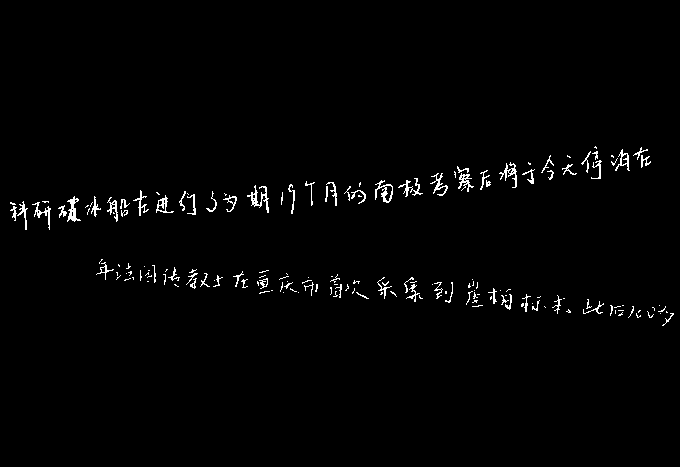 科研破冰船在进行了为期19个月的南极考察后将于今天停泊在
年法国传教士在重庆市首次采集到崖柏标本。此后100多